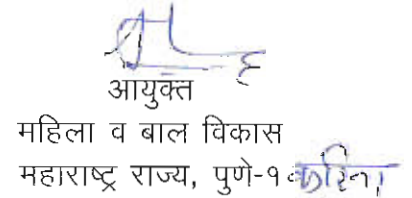 आयुक्त
महिला व बाल विकास
महाराष्ट्र राज्य, पुणे-१ करिता